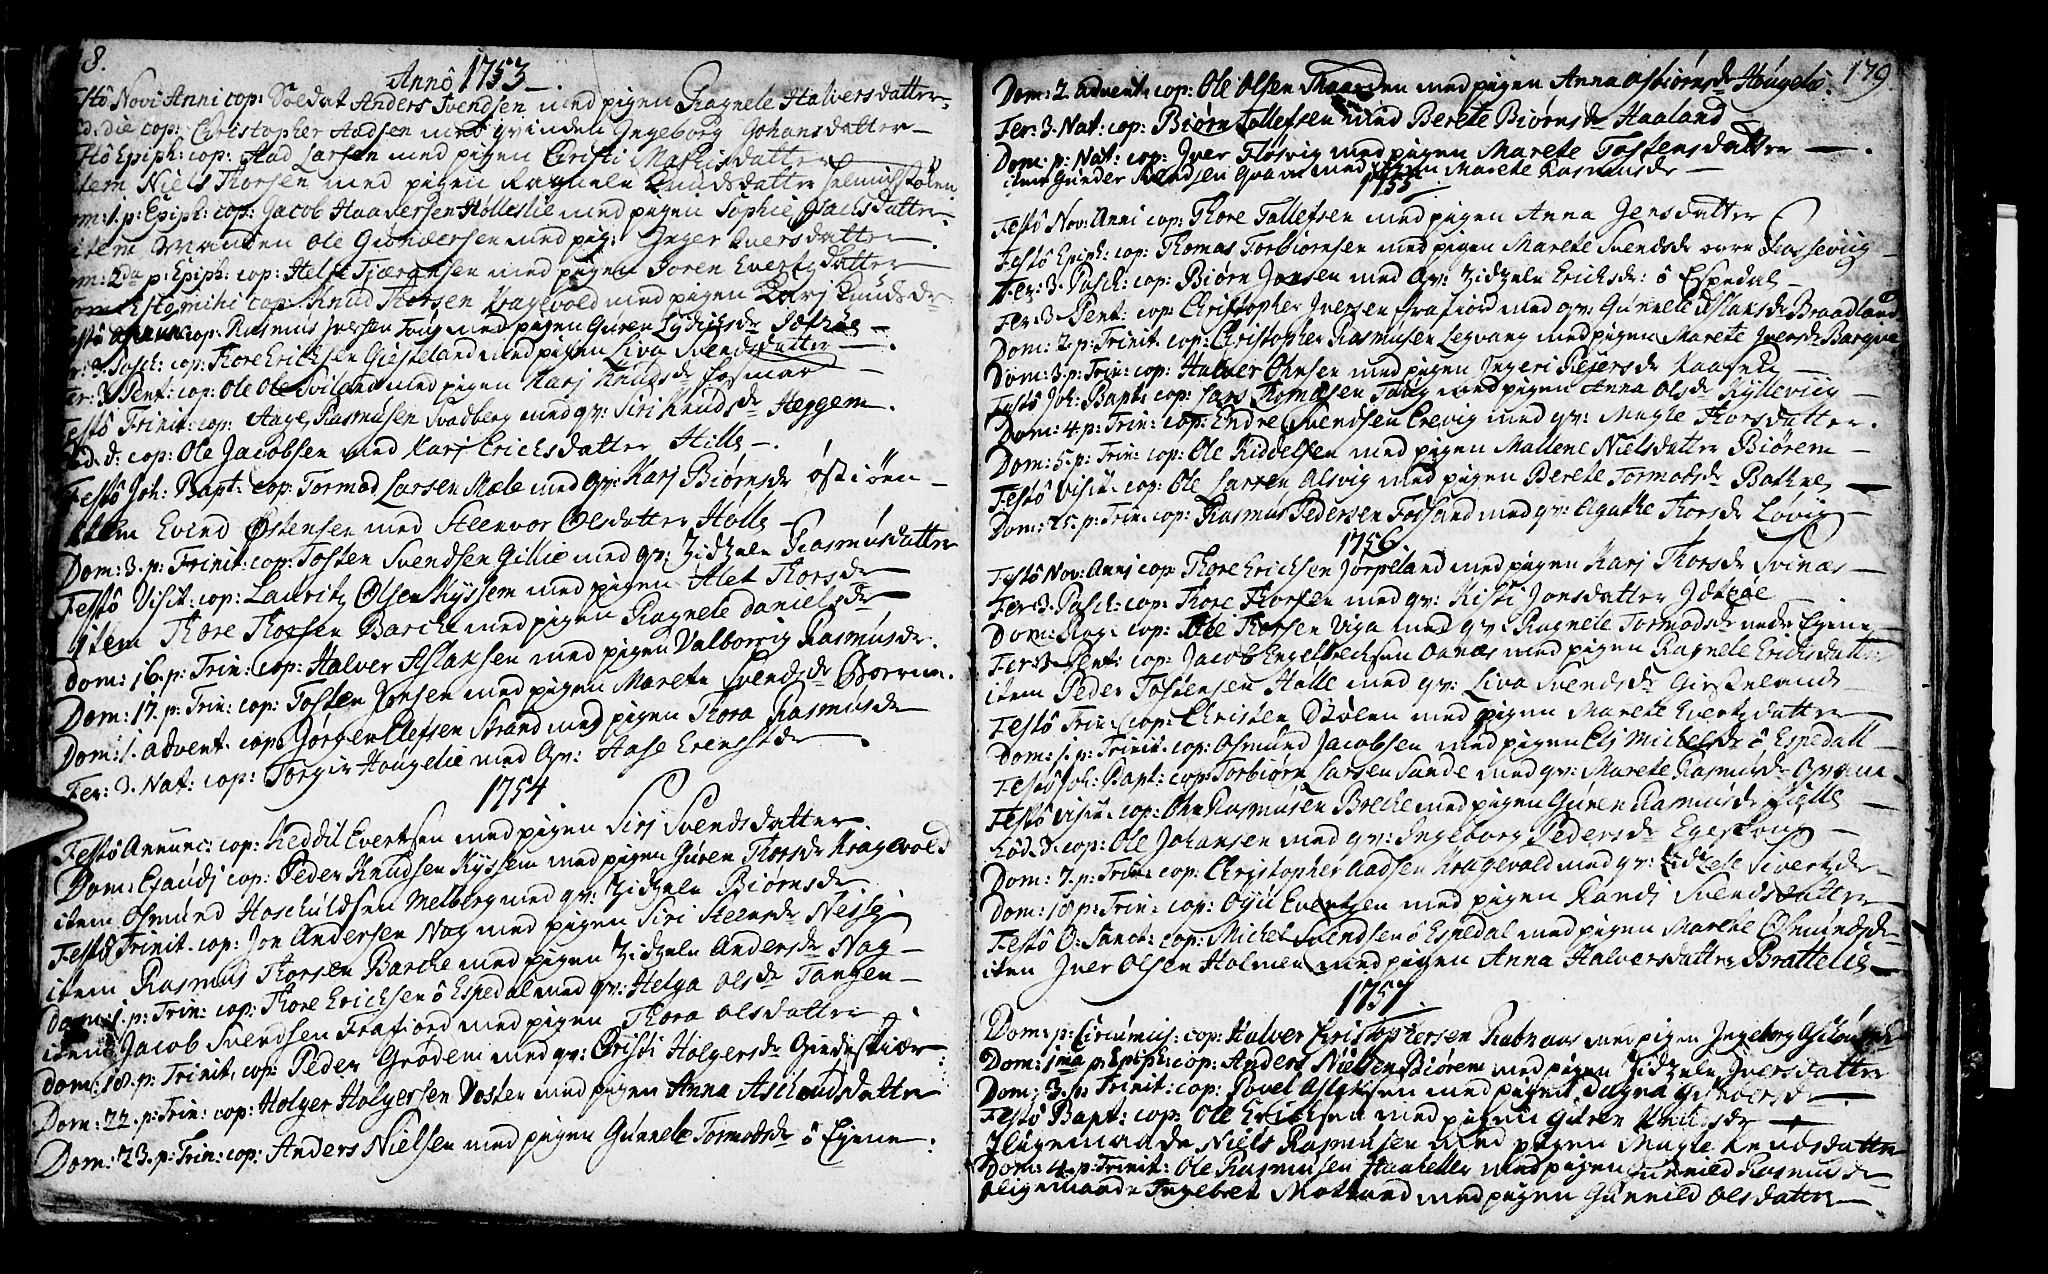 8.
Anno 1753
Festô Novi Anni cop: Soldat Anders Svendsen med pigen Ragnele Halversdatter
Eod. die cop: Christopher Aadsen med qvinden Ingeborg Johansdatter
Festô Epiph: cop: Aad Larsen med pigen Christi Mathisdatter
item Niels Thorsen med pigen Ragnele Knudsdatter
Dom: 1. p: Epiph: cop: Jacob Haaversen Holleslie med pigen Sophie Isachsdatter
item Manden Ole Gundersen med pig: Inger Iversdatter
Dom: 2da p: Epiph: cop: Helje Tjærandsen med pigen Soren Evertsdatter
Dom Estomihi cop: Knud Thorsen Kragevold med pigen Karj Knudsdr
Festô Annunc: cop: Rasmus Iversen Toug med pigen Guren Lydichsdr
Fer: 3. Pasch: cop: Thore Erichsen Giesteland med pigen Liva Svendsdatter
Fer: 3 Pent: cop: Ole Ole Sviland med pigen Karj Knudsdr Fosmar
Festô Trinit: cop: Aage Rasmusen Svadberg med qv: Siri Knudsdr Heggem.
Eod. d: cop: Ole Jacobsen med Karj Erichsdatter Hille
Festô Joh: Bapt: cop: Tormod Larsen Mæle med qv: Karj Biørnsdr østiøen
item Evend Østensen med Steenvor Olsdatter Holle
Dom: 3. p: Trinit: cop: Tosten Svendsen Gillie med qv: Zidzele Rasmusdatter
Festô Visit: cop: Lauritz Olsen Kyssem med pigen Alet Thorsdr
item Thore Thorsen Barche med pigen Ragnele Danielsdr
Dom: 16. p: Trin: cop: Halver Aslaksen med pigen Valborrig Rasmusdr.
Dom: 17. p: Trin: cop: Tosten Jonsen med pigen Marete Svendsdr
Dom: 1. advent. cop: Jørgen Elefsen Strand med pigen Thora Rasmusdr
Fer: 3. Nat: cop: Torgir Hougelie med qv: Aase
1754
Festô Annunc: cop: Keddil Evertsen med pigen Sirj Svendsdatter
Dom: Exaudj cop: Peder Knudsen Kyssem med pigen Guren Thorsdr Kragevold
item Osmund Hoschuldsen Melberg med qv: Zidzele Biørnsdr
Festô Trinit. cop: Jon Andersen Nag med pigen Siri Steensdr Nessej
item Rasmus Thorsen Barche med pigen Zidzele Andersdr Nag
Dom: 1. p: Trin: cop: Thore Erichsen ô Espedal med qv: Helga Olsdr Tangen
item Jacob Svendsen Frafiord med pigen Thora Olsdatter
Dom: 18. p: Trinit: cop: Peder Grødem med qv: Christi Holgersdr
Dom: 22. p: Trin: cop: Holger Holgersen Vosten med pigen Anna
Dom: 23. p: Trin: cop: Anders Nielsen med pigen Gunnele Tormodsdr ô Eiene.
179
Dom: 2. advent: cop: Ole Olsen Skaarden med pigen Anna Osbiørnsdr Hougelie.
Fer: 3. Nat: cop: Biørn Tollefsen med Berete Biørnsdr Haaland
Dom: p: Nat: cop: Iver Flosvig med pigen Marete Tostensdatter
item Gunder med pigen Marete Rasmusdr
1755
Festô Nov: Anni cop: Thore Tollefsen med pigen Anna Jensdatter
Festô Epiph: cop: Thomas Torbiørnsen med pigen Marete Svendsdr
Fer: 3. Pasch: cop: Biørn Jonsen med qv: Zidzele Erichsdr: ô Espedal
Fer: 3 Pent: cop: Christopher Iversen Frafiord med qv: Gunnele Aslaksdr Braadland
Dom: 2. p: Trinit. cop: Christopher Rasmusen Legvang med pigen Marete Iversdr
Dom: 3. p: Trin: cop: Halver med pigen Ingeri Pedersdr
Festô Joh: Bapt: cop: Lars Thomasen Toug med pigen Anna Olsdr Kyllevig
Dom: 4. p: Trin: cop: Endre Svendsen Erevig med qv: Magle Thorsdatter.
Dom: 5. p: Trin: cop: Ole Kiddelsen med pigen Mallene Nielsdatter Biørem
Festô Visit. cop: Ole Larsen Alsvig med pigen Berete Tormodsdr
Dom: 25. p: Trin. cop: Rasmus Pedersen Fossand med qv: Agathe Thorsdr Løvig
1756
Festô Nov: Annj cop Thore Erichsen Jørpeland med pigen Karj Thorsdr Svinæs
Fer: 3. Pasch: cop: Thore Thorsen med qv: Kisti Jonsdatter Idsøe
Dom: Rog: cop: Ole Thorsen Uga med qv: Ragnele Tormodsdr nedre Eiene
Fer: 3 Pent: cop: Jacob Engelbrechsen Oanæs med pigen Ragnele Erichsdatter
item Peder Tostensen Holle med qv: Liva Svendsdr Giesteland
Festô Trin: cop: Christen Støelen med pigen Marete Evertzdatter
Dom: 1. p: Trinit: cop: Osmund Jacobsen med pigen Elj Michelsdr ô Espedall
Festô Joh: Bapt: cop: Torbiørn Larsen Sande med qv: Marete Rasmusdr
Festô Visit: cop: Ohn Rasmusen Breche med pigen Guren Rasmusdr
Eod. d. cop: Ole Johansen med qv: Ingeborg Pedersdr Egeskoug
Dom: 7. p: Trin: cop: Christopher Aadsen Kragevold med qv: Zidzele Sivertzdr
Dom: 18 p: Trin: cop: Oyu Evertsen med pigen Randj Svendsdatter
Festô O: Sanct: cop: Michel Svendsen ô Espedal med pigen Marete Osmundsdr
iten Iver Olsen Holmen med pigen Anna Halversdatter Brattelie
1757.
Dom: p: Circumcis: cop: Halver Christophersen Rubnaas med pigen Ingeborg
Dom: 1ma p: Epiph: cop: Anders Nielsen Biørem med pigen Zidzele Iversdatter
Dom: 3. p: Trinit: cop: Povel Aslaksen med pigen
Festô Bapt: cop: Ole Erichsen med pigen Guren
Iligemaade Niels Rasmusen med pigen Magle Knudsdatter
Dom: 4. p: Trinit: Ole Rasmusen Haaheller med pigen Gunnild Rasmusdr
iligemaade Ingebret med pigen Gunnild Olsdatter